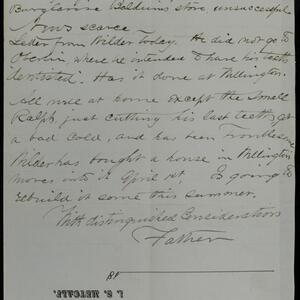 Burglarize Baldwin's store, unsuccessful
News scarce —
Letter from Wilder today. He did not go to
Oberlin where he intended to have his teeth
dentisted. Has it done at Wellington.
All well at home except the small
Ralph, just cutting his last teeth, got
a bad cold, and has been troublesome
Wilder has bought a house in Wellington
moves into it April 1st Is going to
rebuild it some this summer.
With distinguished Considerations
Father
18
S. METCALF.